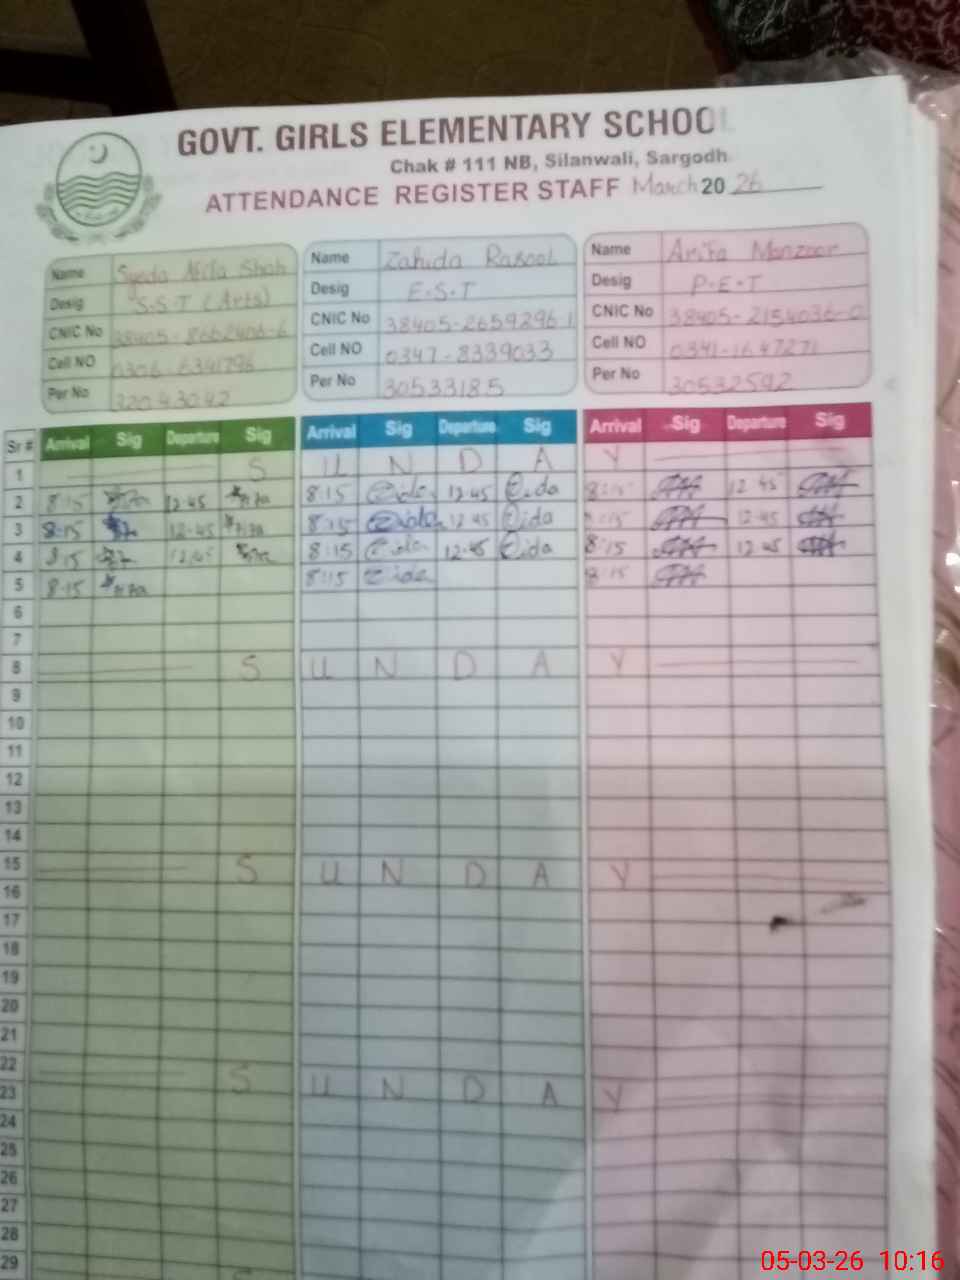 GOVT. GIRLS ELEMENTARY SCHOOL
Chak # 111 NB, Silanwali, Sargodh
ATTENDANCE REGISTER STAFF March 20 26
Name Syeda Afifa Shah Name Zahida Rasool Name Arifa Manzoor
Desig S.S.T (Arts) Desig E.S.T Desig P.E.T
CNIC No CNIC No 38405-2659296-1 CNIC No 38405-2154036-0
Cell NO 0306-6341796 Cell NO 0347-8339033 Cell NO 0341-1647271
Per No 32043042 Per No 30533185 Per No 30532592
Sr # Arrival Sig Departure Sig Arrival Sig Departure Sig Arrival Sig Departure Sig
1 S U N D A Y
2 8:15 12-45 8:15 12 45 8:15 12 45
3 8:15 12-45 8:15 12 45 8:15 12 45
4 8:15 12:45 8:15 12-45 8:15 12 45
5 8-15 8:15 8:15
6
7
8 S U N D A Y
9
10
11
12
13
14
15 S U N D A Y
16
17
18
19
20
21
22 S U N D A Y
23
24
25
26
27
28
29
05-03-26 10:16